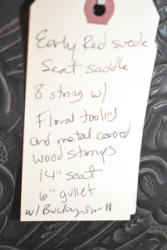 Early Red suede
Seat saddle
8 string w/
Floral tooling
and metal covered
wood stirrups
14" seat
6" gullet
w/ Bucking